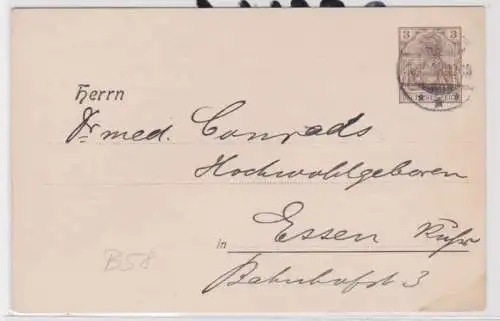 3 3
Herrn
Dr. med. Conrads
Hochwohlgeboren
in Essen Ruhr
Bahnhofst 3
B58